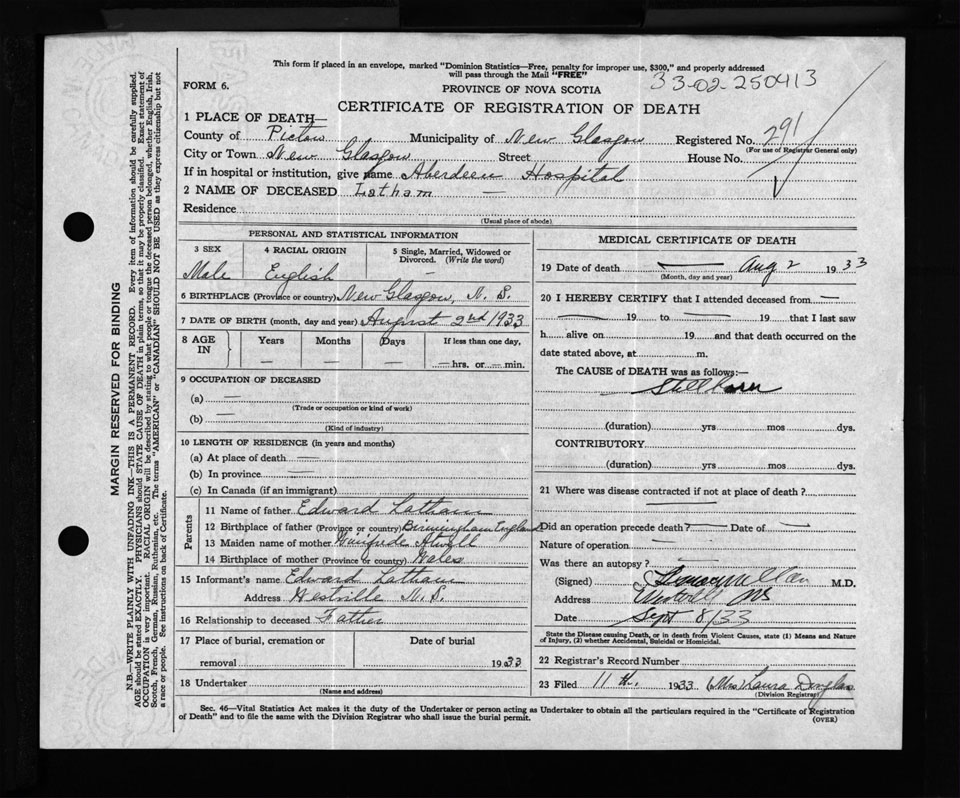 This form if placed in an envelope, marked "Dominion Statistics—Free, penalty for improper use, $300," and properly addressed
will pass through the Mail "FREE"
33-02-250413
FORM 6.
PROVINCE OF NOVA SCOTIA
CERTIFICATE OF REGISTRATION OF DEATH
1 PLACE OF DEATH—
County of Pictou Municipality of New Glasgow Registered No. 291
(For use of Registrar General only)
City or Town New Glasgow Street House No.
If in hospital or institution, give name Aberdeen Hospital
2 NAME OF DECEASED Latham —
Residence
(Usual place of abode)
PERSONAL AND STATISTICAL INFORMATION
3 SEX 4 RACIAL ORIGIN 5 Single, Married, Widowed or Divorced. (Write the word)
Male English —
6 BIRTHPLACE (Province or country) New Glasgow, N. S.
7 DATE OF BIRTH (month, day and year) August 2nd 1933
8 AGE IN Years Months Days If less than one day,
— — — — hrs. or — min.
9 OCCUPATION OF DECEASED
(a) —
(Trade or occupation or kind of work)
(b) —
(Kind of industry)
10 LENGTH OF RESIDENCE (in years and months)
(a) At place of death —
(b) In province —
(c) In Canada (if an immigrant)
Parents
11 Name of father Edward Latham
12 Birthplace of father (Province or country) Birmingham England
13 Maiden name of mother Winifrede Atwell
14 Birthplace of mother (Province or country) Wales
15 Informant's name Edward Latham
Address Westville N. S.
16 Relationship to deceased Father
17 Place of burial, cremation or removal Date of burial
1933
18 Undertaker
(Name and address)
MEDICAL CERTIFICATE OF DEATH
19 Date of death — Aug 2 1933
(Month, day and year)
20 I HEREBY CERTIFY that I attended deceased from —
— 19 to — 19 that I last saw
h alive on 19 and that death occurred on the
date stated above, at m.
The CAUSE of DEATH was as follows:—
Stillborn
(duration) yrs mos dys.
CONTRIBUTORY
(duration) yrs mos dys.
21 Where was disease contracted if not at place of death?
—
Did an operation precede death? — Date of —
Nature of operation —
Was there an autopsy? —
(Signed) M.D.
Address NS
Date Sept 8/33
State the Disease causing Death, or in death from Violent Causes, state (1) Means and Nature
of Injury, (2) whether Accidental, Suicidal or Homicidal.
22 Registrar's Record Number
23 Filed 11th. 1933 (Mrs) Laura Douglas
(Division Registrar)
Sec. 46—Vital Statistics Act makes it the duty of the Undertaker or person acting as Undertaker to obtain all the particulars required in the "Certificate of Registration
of Death" and to file the same with the Division Registrar who shall issue the burial permit.
(OVER)
MARGIN RESERVED FOR BINDING
N.B.—WRITE PLAINLY WITH UNFADING INK—THIS IS A PERMANENT RECORD. Every item of information should be carefully supplied.
AGE should be stated EXACTLY. PHYSICIANS should STATE CAUSE OF DEATH in plain terms, so that it may be properly classified. Exact statement of
OCCUPATION is very important. RACIAL ORIGIN will be described by stating to what people or tongue the deceased person belonged, whether English, Irish,
Scotch, French, German, Russian, Ruthenian, etc. The terms "AMERICAN" or "CANADIAN" SHOULD NOT BE USED as they express citizenship but not
a race or people. See instructions on back of Certificate.